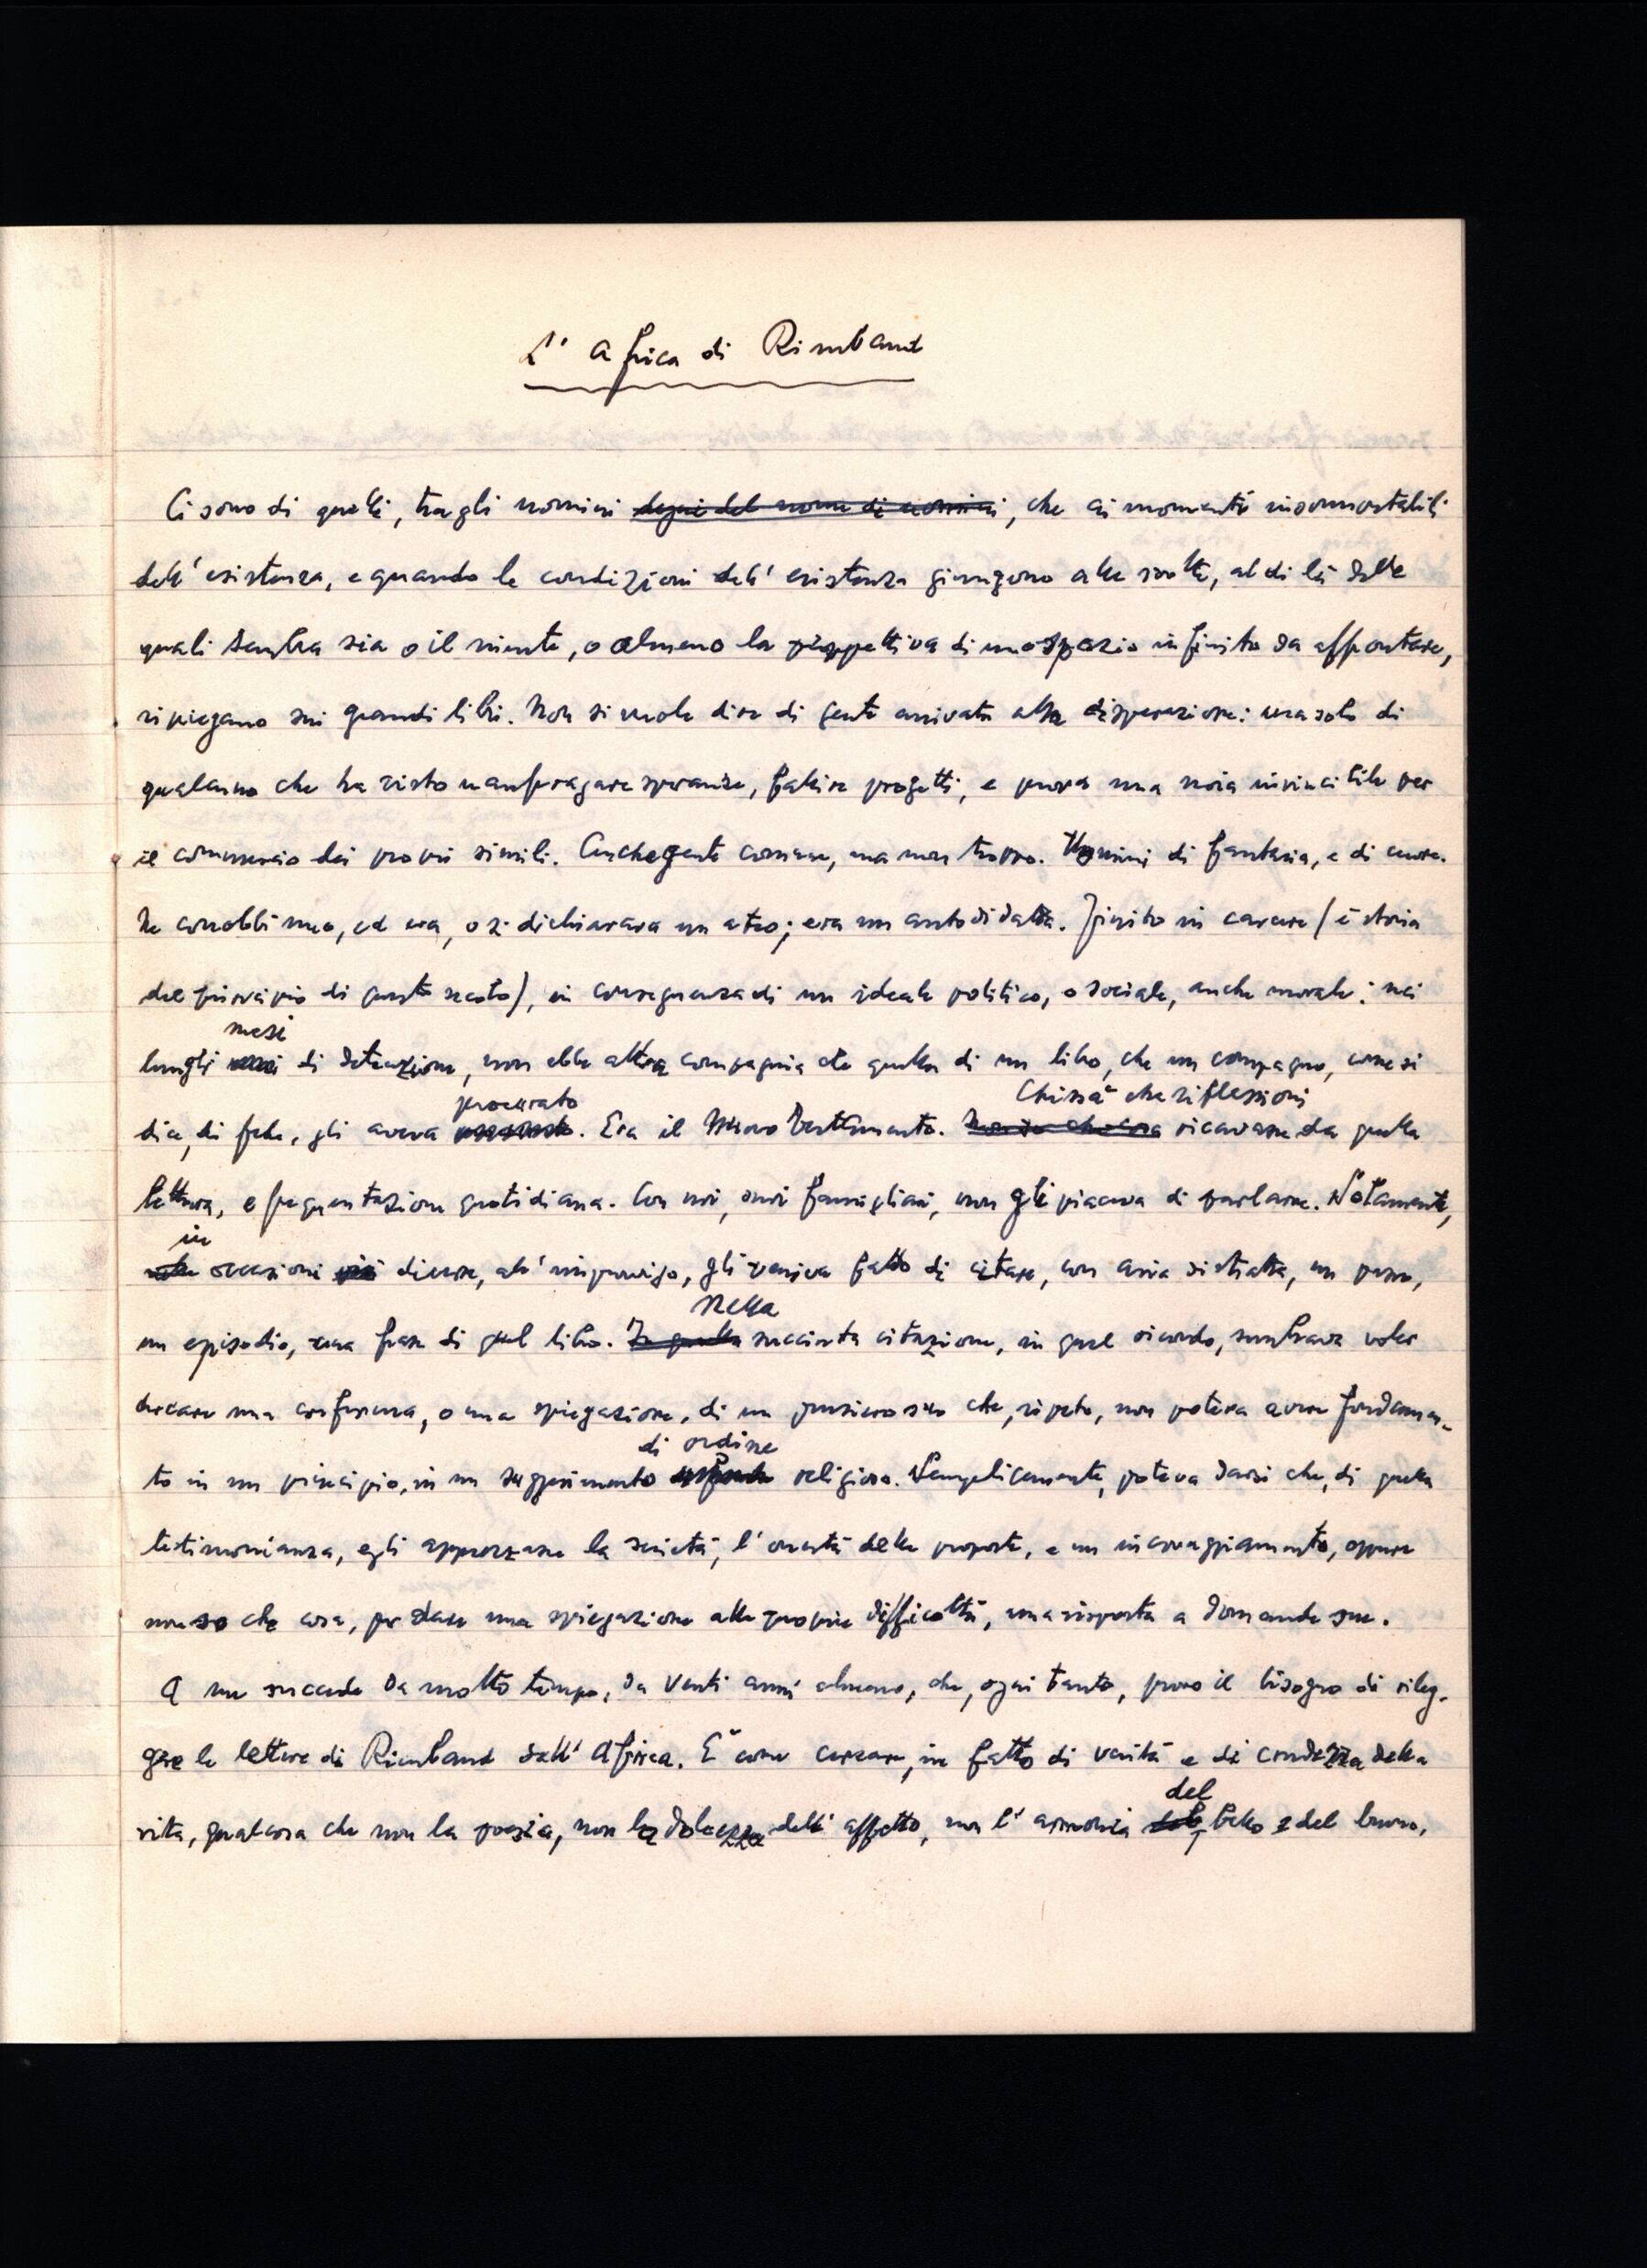 L' Africa di Rimbaud
Ci sono di quelli, tra gli uomini degni del nome di uomini, che ai momenti insormontabili
dell' esistenza, e quando le condizioni dell' esistenza giungono alle svolte, al di là delle
quali sembra sia o il niente, o almeno la prospettiva di uno spazio infinito da affrontare,
ripiegano sui grandi libri. Non si vuole dire di gente arrivata alla disperazione: ma solo di
qualcuno che ha visto naufragare speranze, fallire progetti, e prova una noia invincibile per
il commercio dei propri simili. Anche gente comune, ma non troppo. Uomini di fantasia, e di cuore.
Ne conobbi uno, ed era, o si dichiarava un ateo; era un autodidatta. Finito in carcere (è storia
del principio di questo secolo), in conseguenza di un ideale politico, o sociale, anche morale; nei
mesi
lunghi di detenzione, non ebbe altra compagnia che quella di un libro, che un compagno, come si
procurato Chissà che riflessioni
dice, di fede, gli aveva . Era il Nuovo Testamento. Non so che cosa ricavasse da quella
lettura, e frequentazione quotidiana. Con noi, suoi famigliari, non gli piaceva di parlarne. Solamente,
in
occasioni più diverse, all' improvviso, gli veniva fatto di citare, con aria distratta, un passo,
Nella
un episodio, una frase di quel libro. In quella succinta citazione, in quel ricordo, sembrava voler
cercare una conferma, o una spiegazione, di un pensiero suo che, ripeto, non poteva avere fondamen-
di ordine
to in un principio, in un suggerimento religioso. Semplicemente, poteva darsi che, di quella
testimonianza, egli apprezzasse la serietà, l' onestà delle proposte, e un incoraggiamento, oppure
non so che cosa, per dare una spiegazione alle proprie difficoltà, una risposta a domande sue.
A me succede da molto tempo, da venti anni almeno, che, ogni tanto, provo il bisogno di rileg-
gere le lettere di Rimbaud dall' Africa. È come cercare, in fatto di verità e di crudezza della
del
vita, qualcosa che non la poesia, non la dolcezza dell' affetto, non l' armonia bello e del buono,